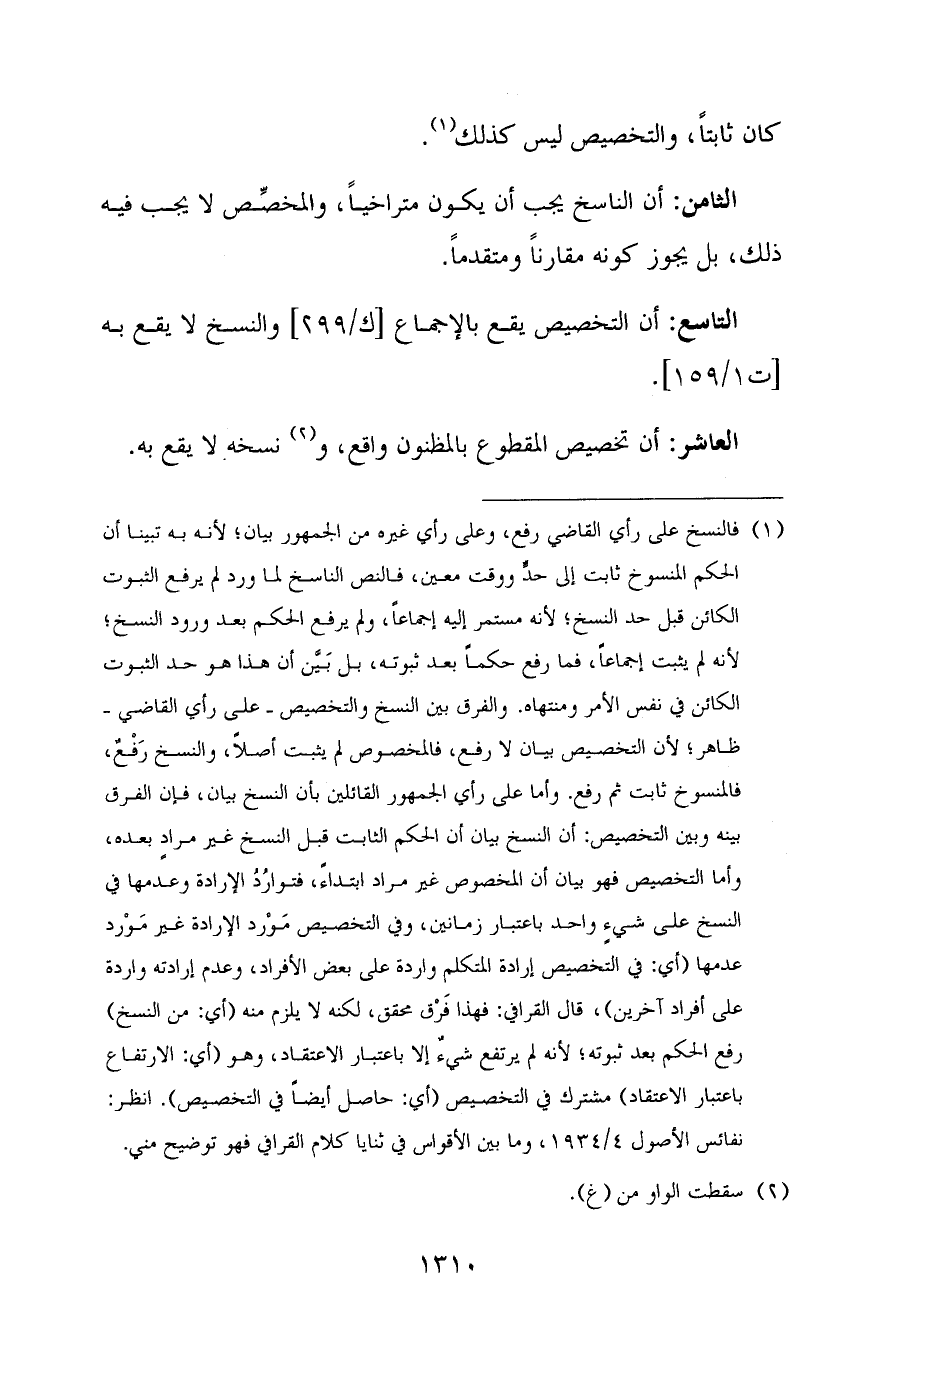 كان ثابتاً، والتخصيص ليس كذلك(١).
الثامن: أن الناسخ يجب أن يكون متراخياً، والمخصِّص لا يجب فيه
ذلك، بل يجوز كونه مقارناً ومتقدماً.
التاسع: أن التخصيص يقع بالإجماع [ك/٢٩٩] والنسخ لا يقع به
[ت١/١٥٩].
العاشر: أن تخصيص المقطوع بالمظنون واقع، و(٢) نسخه لا يقع به.
(١) فالنسخ على رأي القاضي رفع، وعلى رأي غيره من الجمهور بيان؛ لأنه به تبينا أن
الحكم المنسوخ ثابت إلى حدٍّ ووقت معين، فالنص الناسخ لما ورد لم يرفع الثبوت
الكائن قبل حد النسخ؛ لأنه مستمر إليه إجماعاً، ولم يرفع الحكم بعد ورود النسخ؛
لأنه لم يثبت إجماعاً، فما رفع حكماً بعد ثبوته، بل بَيَّن أن هذا هو حد الثبوت
الكائن في نفس الأمر ومنتهاه. والفرق بين النسخ والتخصيص ـ على رأي القاضي ـ
ظاهر؛ لأن التخصيص بيان لا رفع، فالمخصوص لم يثبت أصلاً، والنسخ رَفْعٌ،
فالمنسوخ ثابت ثم رفع. وأما على رأي الجمهور القائلين بأن النسخ بيان، فإن الفرق
بينه وبين التخصيص: أن النسخ بيان أن الحكم الثابت قبل النسخ غير مرادٍ بعده،
وأما التخصيص فهو بيان أن المخصوص غير مراد ابتداءً، فتوارُدُ الإرادة وعدمها في
النسخ على شيءٍ واحد باعتبار زمانين، وفي التخصيص مَوْرد الإرادة غير مَوْرد
عدمها (أي: في التخصيص إرادة المتكلم واردة على بعض الأفراد، وعدم إرادته واردة
على أفراد آخرين)، قال القرافي: فهذا فَرْق محقق، لكنه لا يلزم منه (أي: من النسخ)
رفع الحكم بعد ثبوته؛ لأنه لم يرتفع شيءٌ إلا باعتبار الاعتقاد، وهو (أي: الارتفاع
باعتبار الاعتقاد) مشترك في التخصيص (أي: حاصل أيضاً في التخصيص). انظر:
نفائس الأصول ١٩٣٤/٤، وما بين الأقواس في ثنايا كلام القرافي فهو توضيح مني.
(٢) سقطت الواو من (غ).
١٣١٠